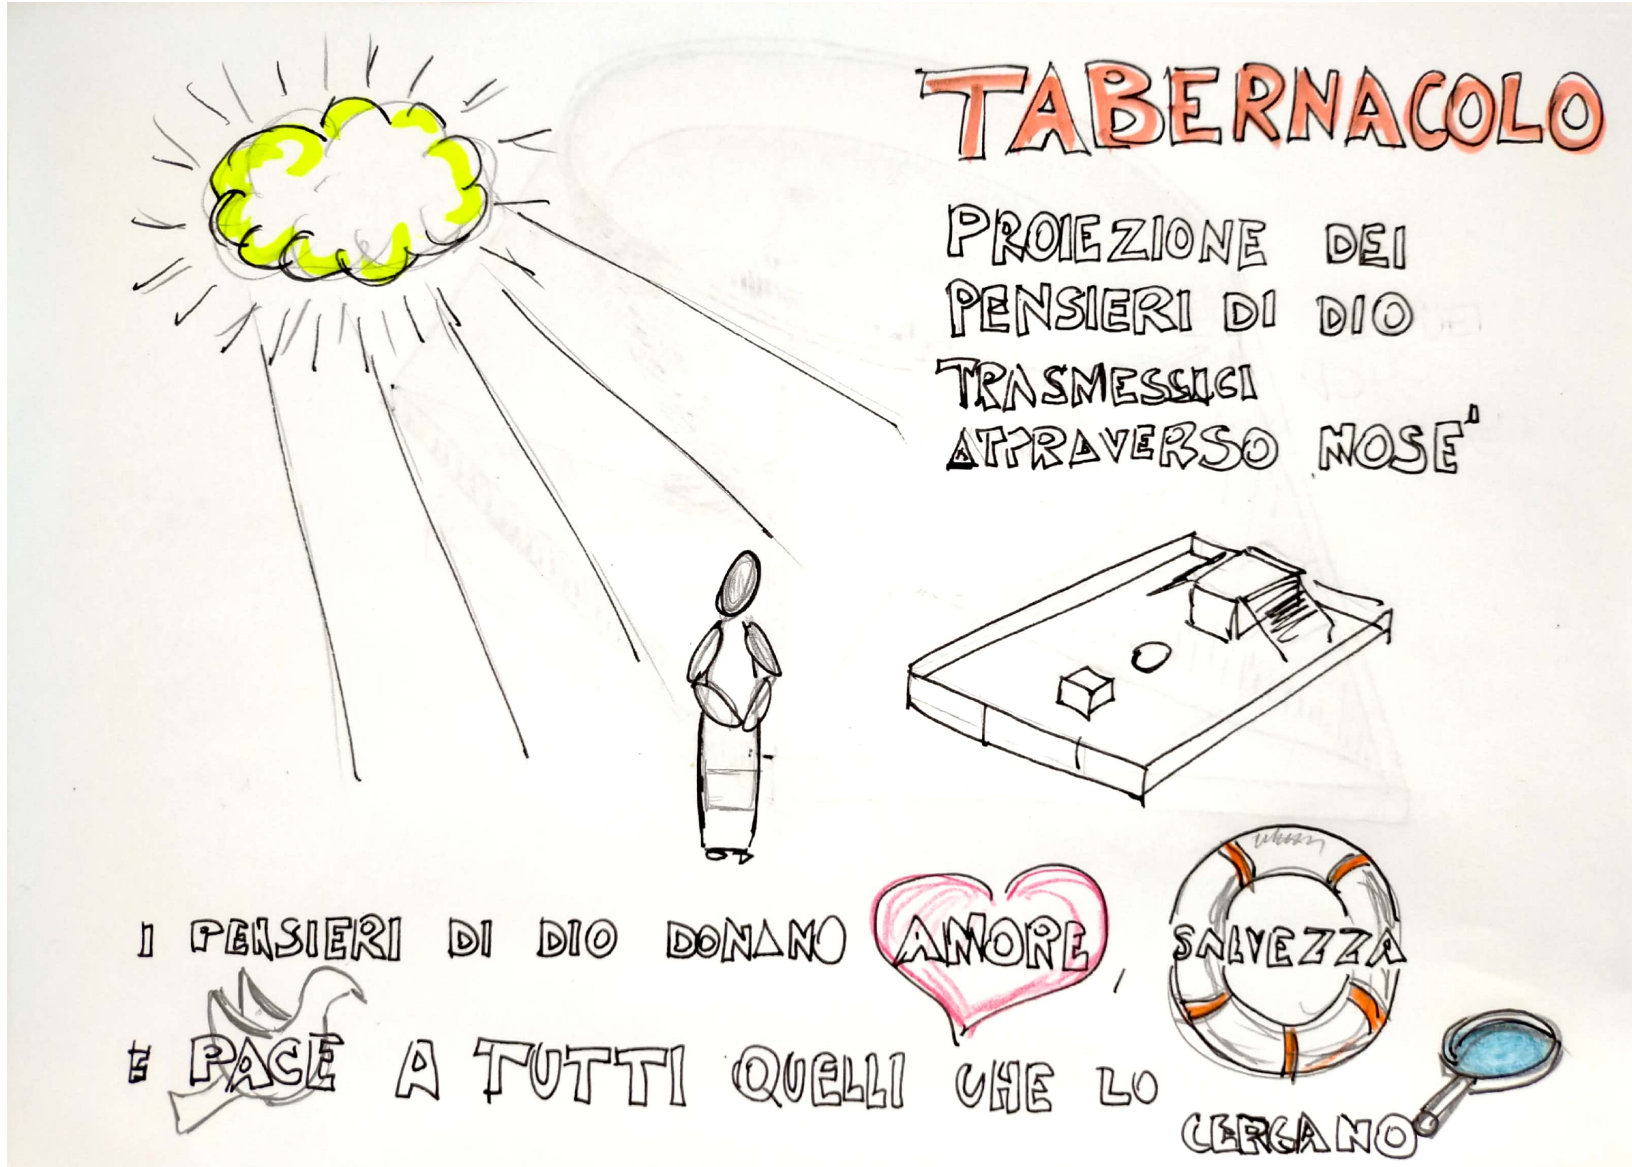 TABERNACOLO
PROIEZIONE DEI
PENSIERI DI DIO
TRASMESSICI
ATTRAVERSO MOSE'
I PENSIERI DI DIO DONANO AMORE, SALVEZZA
E PACE A TUTTI QUELLI CHE LO
CERCANO